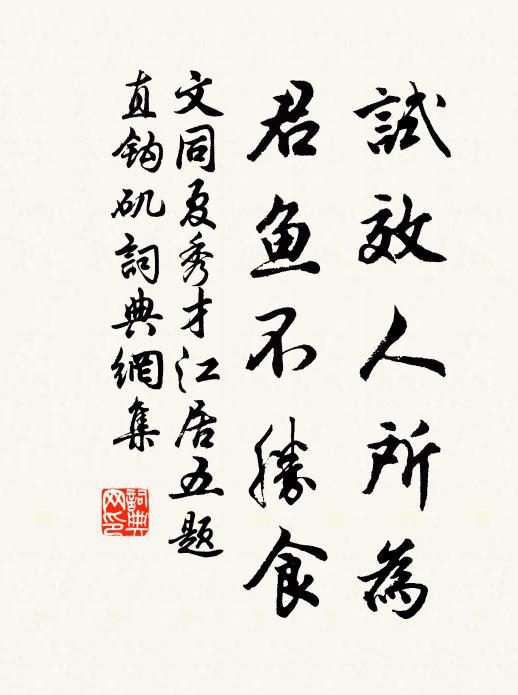 試效人所為
君鱼不勝食
文同夏秀才江居五题
直鈎矶詞典網集
詞典
网印